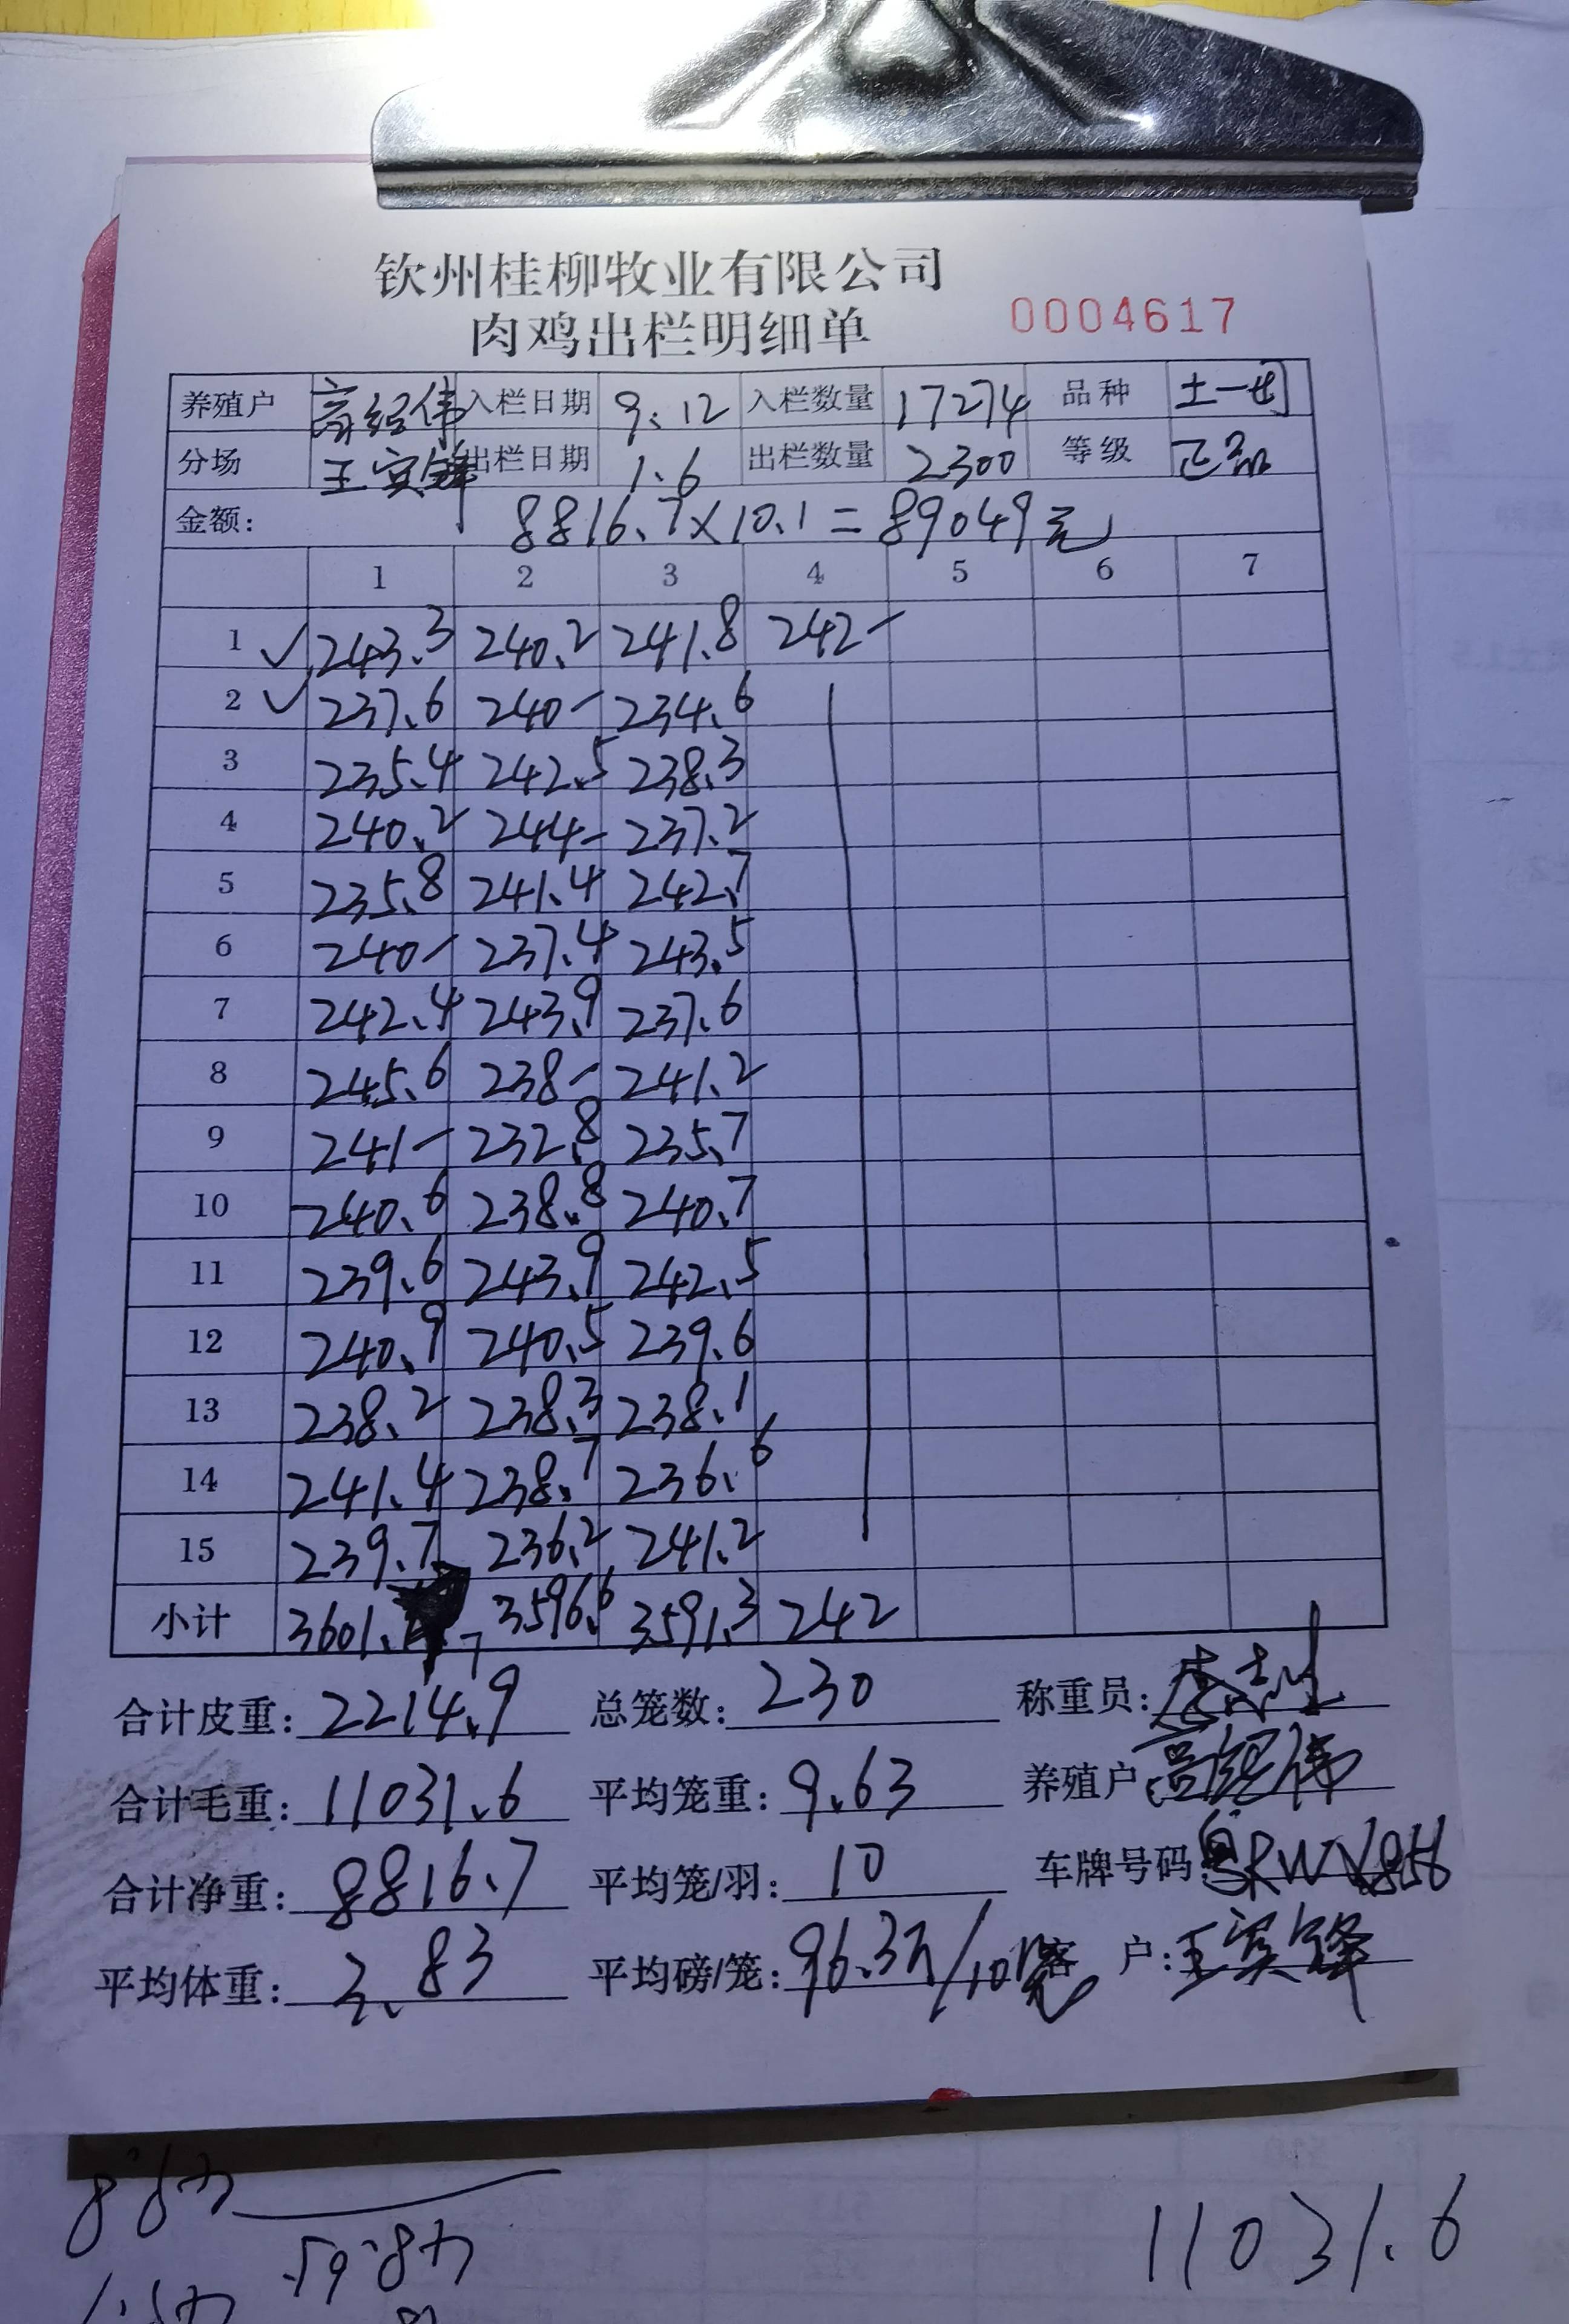 钦州桂柳牧业有限公司
肉鸡出栏明细单 0004617
养殖户 高经伟 入栏日期 9.12 入栏数量 17274 品种 土一
分场 王宾锋 出栏日期 1.6 出栏数量 2300 等级 正品
金额: 8816.7×10.1=89049元
1 2 3 4 5 6 7
1 ✓ 243.3 240.2 241.8 242-
2 ✓ 237.6 240- 234.6
3 235.4 242.5 238.3
4 240.2 244- 237.2
5 235.8 241.4 242.7
6 240- 237.4 243.5
7 242.4 243.9 237.6
8 245.6 238- 241.2
9 241- 232.8 235.7
10 240.6 238.8 240.7
11 239.6 243.9 242.5
12 240.9 240.5 239.6
13 238.2 238.3 238.1
14 241.4 238.7 236.6
15 239.7 236.2 241.2
小计 3601.7 3596.6 3591.3 242
合计皮重: 2214.9 总笼数: 230 称重员:
合计毛重: 11031.6 平均笼重: 9.63 养殖户 高经伟
合计净重: 8816.7 平均笼/羽: 10 车牌号码:
平均体重: 3.83 平均磅/笼: 96.3斤/10笼 客户: 王宾锋
11031.6